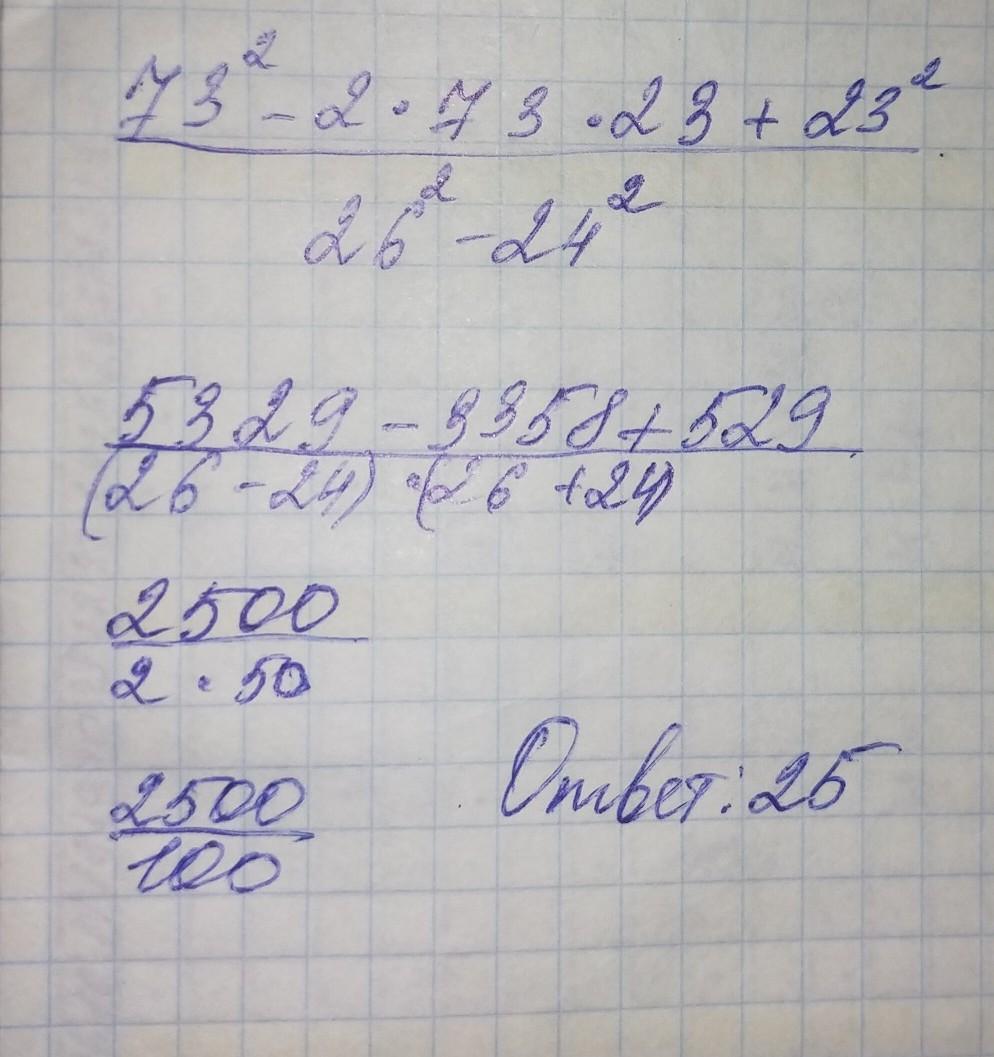 73² - 2 · 73 · 23 + 23²
26² - 24²
5329 - 3358 + 529
(26 - 24) · (26 + 24)
2500
2 · 50
2500
100
Ответ: 25